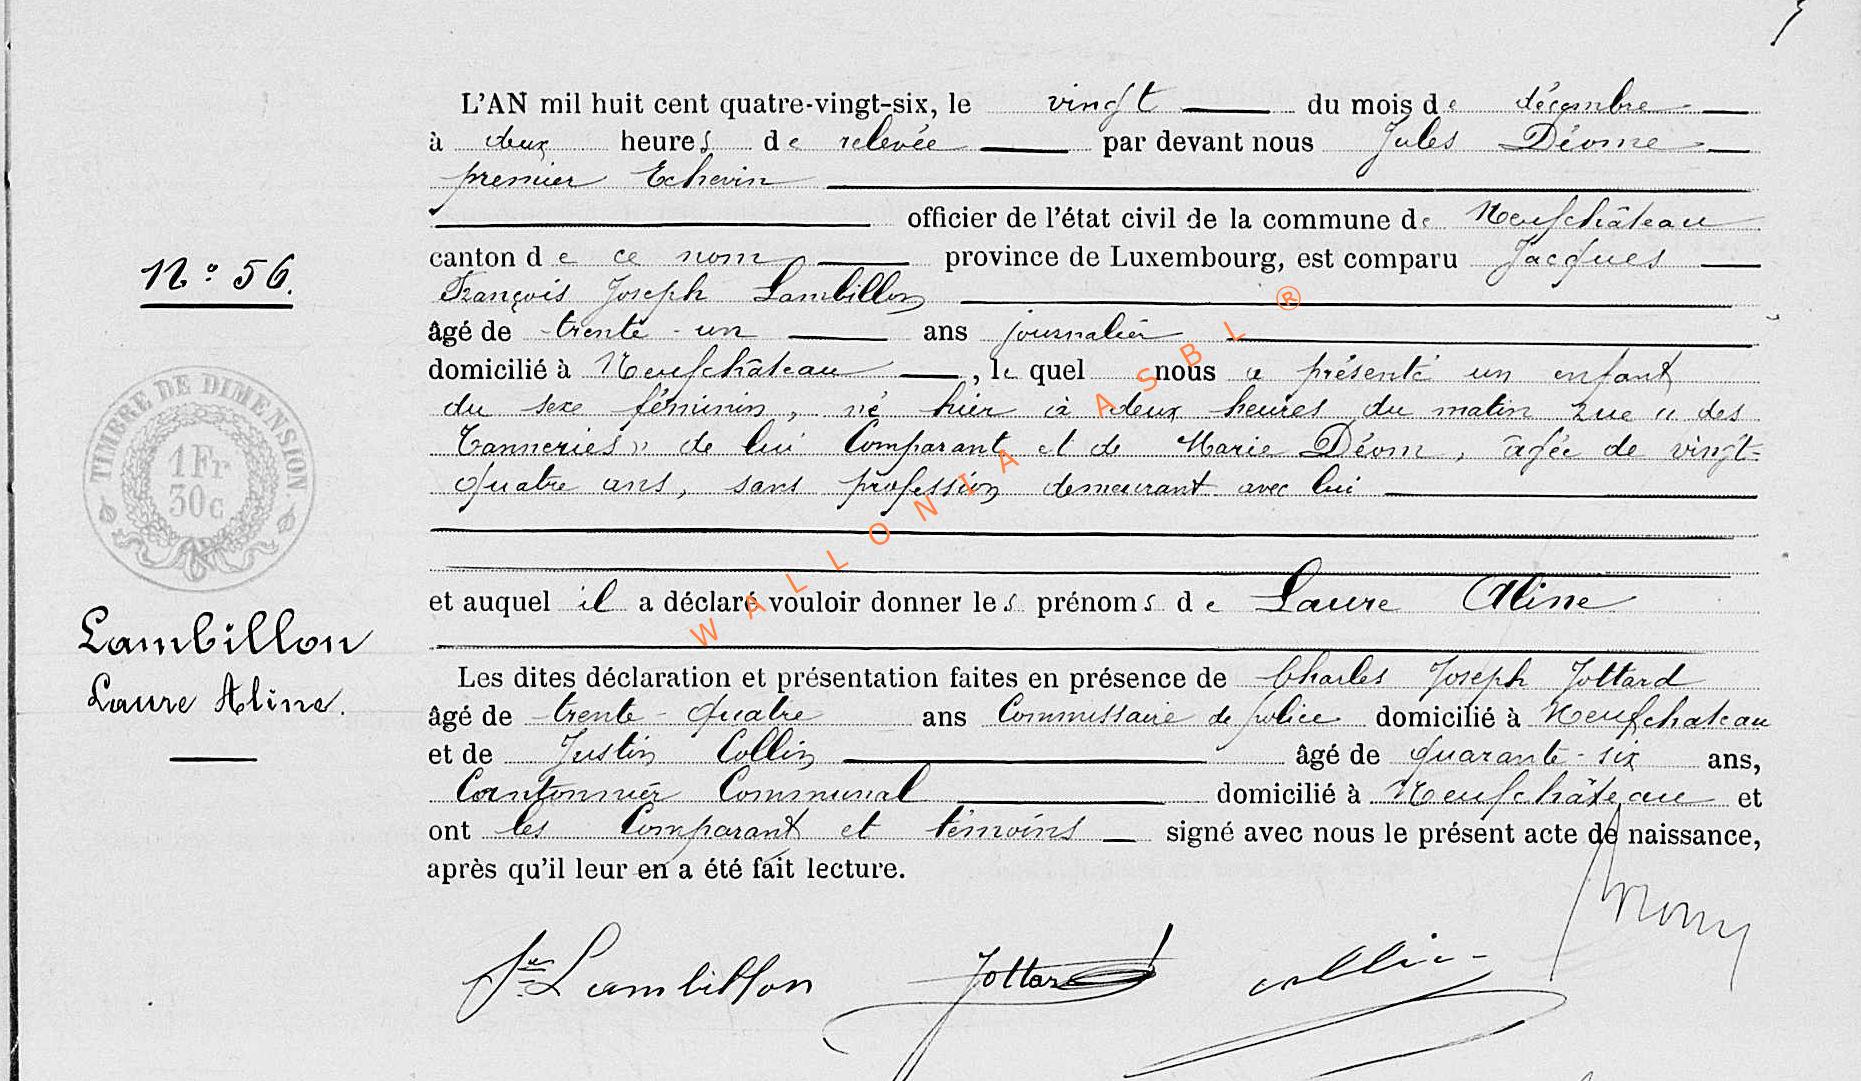 L'AN mil huit cent quatre-vingt-six, le vingt du mois de décembre
à deux heures de relevée par devant nous Jules Déome
premier Echevin
officier de l'état civil de la commune de Neufchâteau
canton de ce nom province de Luxembourg, est comparu Jacques
François Joseph Lambillon
âgé de trente-un ans journalier
domicilié à Neufchâteau, lequel nous a présenté un enfant
du sexe féminin, né hier à deux heures du matin rue « des
Tanneries » de lui Comparant et de Marie Déom, âgée de vingt-
quatre ans, sans profession demeurant avec lui
et auquel il a déclaré vouloir donner les prénoms de Laure Aline
Les dites déclaration et présentation faites en présence de Charles Joseph Jottard
âgé de trente-quatre ans Commissaire de police domicilié à Neufchateau
et de Justin Collin âgé de quarante-six ans,
Cantonnier Communal domicilié à Neufchâteau et
ont les Comparant et témoins signé avec nous le présent acte de naissance,
après qu'il leur en a été fait lecture.
N° 56.
TIMBRE DE DIMENSION
1Fr
30c
Lambillon
Laure Aline.
Lambillon Jottard Collin
WALLONIA ASBL ®